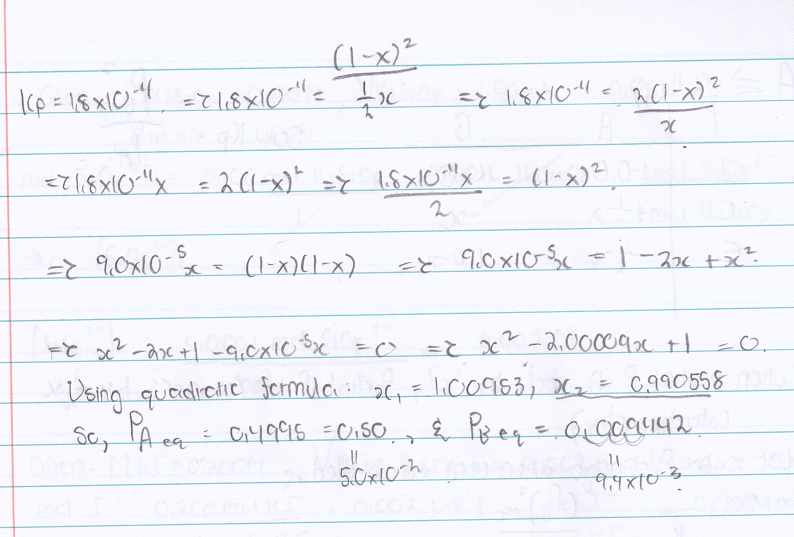 Kp = 1.8×10⁻⁴ => 1.8×10⁻⁴ = (1-x)² / ½x => 1.8×10⁻⁴ = 2(1-x)² / x
=> 1.8×10⁻⁴x = 2(1-x)² => 1.8×10⁻⁴x / 2 = (1-x)².
=> 9.0×10⁻⁵x = (1-x)(1-x) => 9.0×10⁻⁵x = 1-2x+x².
=> x²-2x+1-9.0×10⁻⁵x = 0 => x²-2.00009x+1 = 0.
Using quadratic formula: x₁ = 1.00953, x₂ = 0.990558
So, P_A eq = 0.4995 = 0.50., & P_B eq = 0.009442.
" 5.0×10⁻² " 9.4×10⁻³.